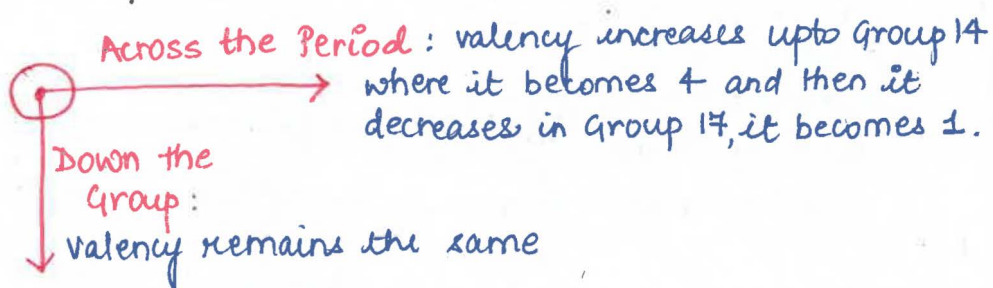 Across the Period : valency increases upto Group 14
where it becomes 4 and then it
decreases in Group 17, it becomes 1.
Down the
Group :
valency remains the same